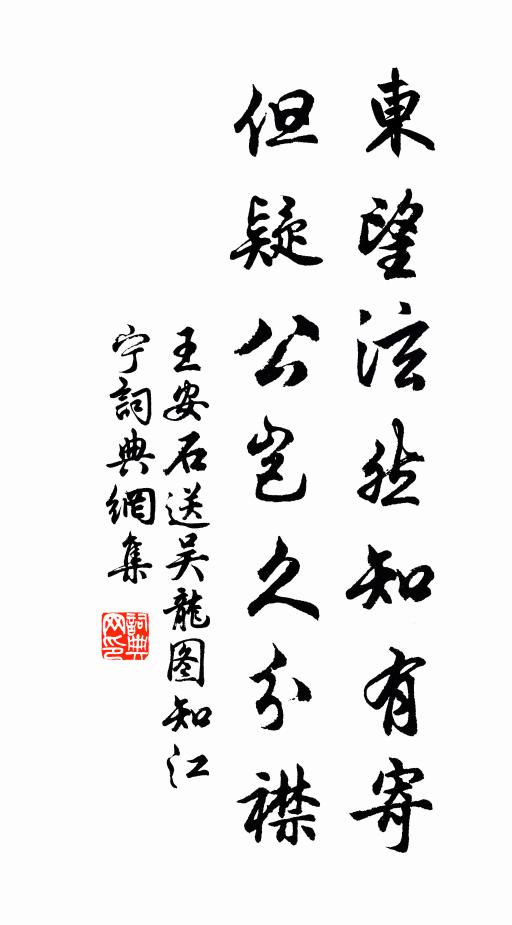 東望泫然知有寄
但疑公豈久分襟
王安石送吴龍图知江
宁詞典網集
詞典网印